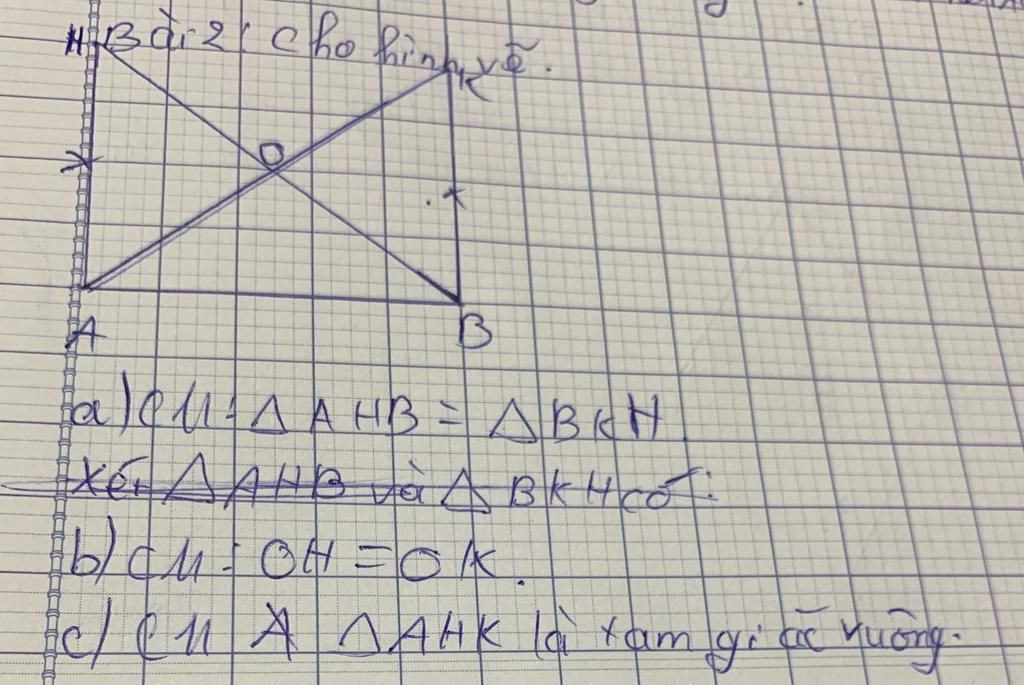 H Bài 2: Cho hình vẽ.
K
O
A
B
a) CM: △ AHB = △ BKH
Xét △ AHB và △ BKH có:
b) CM: OH = OK.
c) CM △ AHK là tam giác vuông.